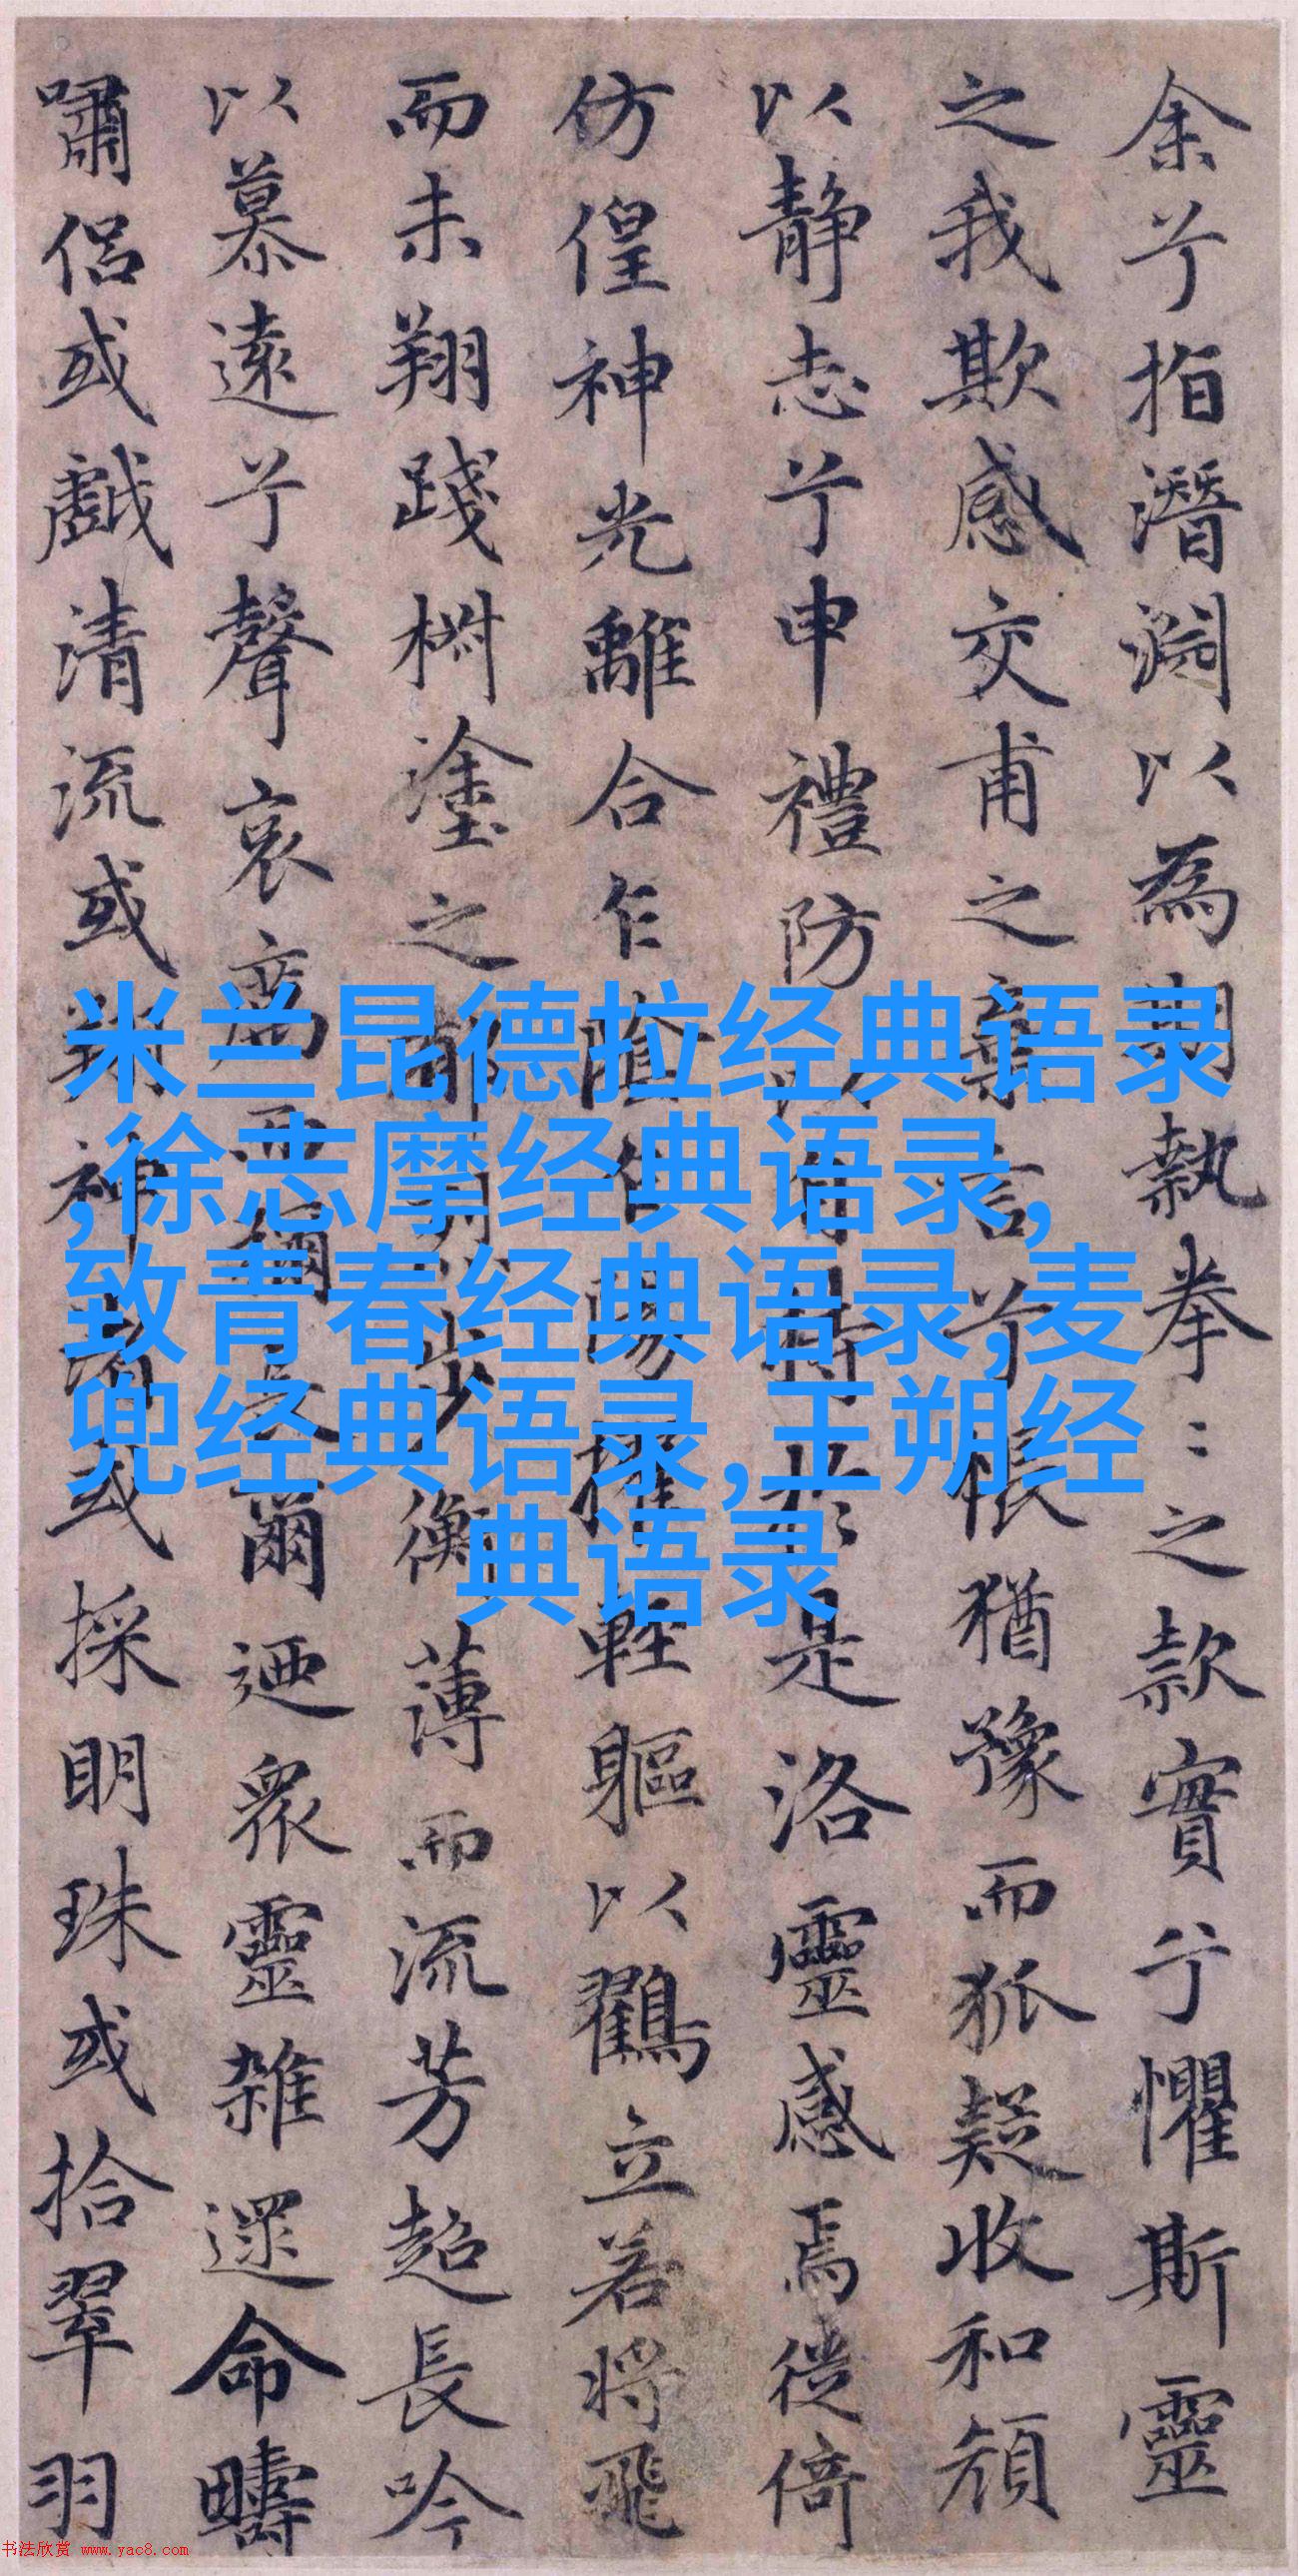 余兮指潛淵以為期執拳〻之款實兮懼斯靈
之我欺感交甫之棄言兮悵猶豫而狐疑收和顏
以靜志兮申禮防以自持於是洛靈感焉徙倚
仿偟神光離合乍陰乍陽擢輕軀以鸖立若將飛
而未翔踐椒塗之郁烈步衡薄而流芳超長吟
以慕遠兮聲哀厲而彌長爾迺衆靈雜遝命疇
嘯侶或戲清流或翔神渚或採明珠或拾翠羽
米兰昆德拉经典语录
,徐志摩经典语录,
致青春经典语录,麦
兜经典语录,王朔经
典语录
书法欣赏 www.yac8.com